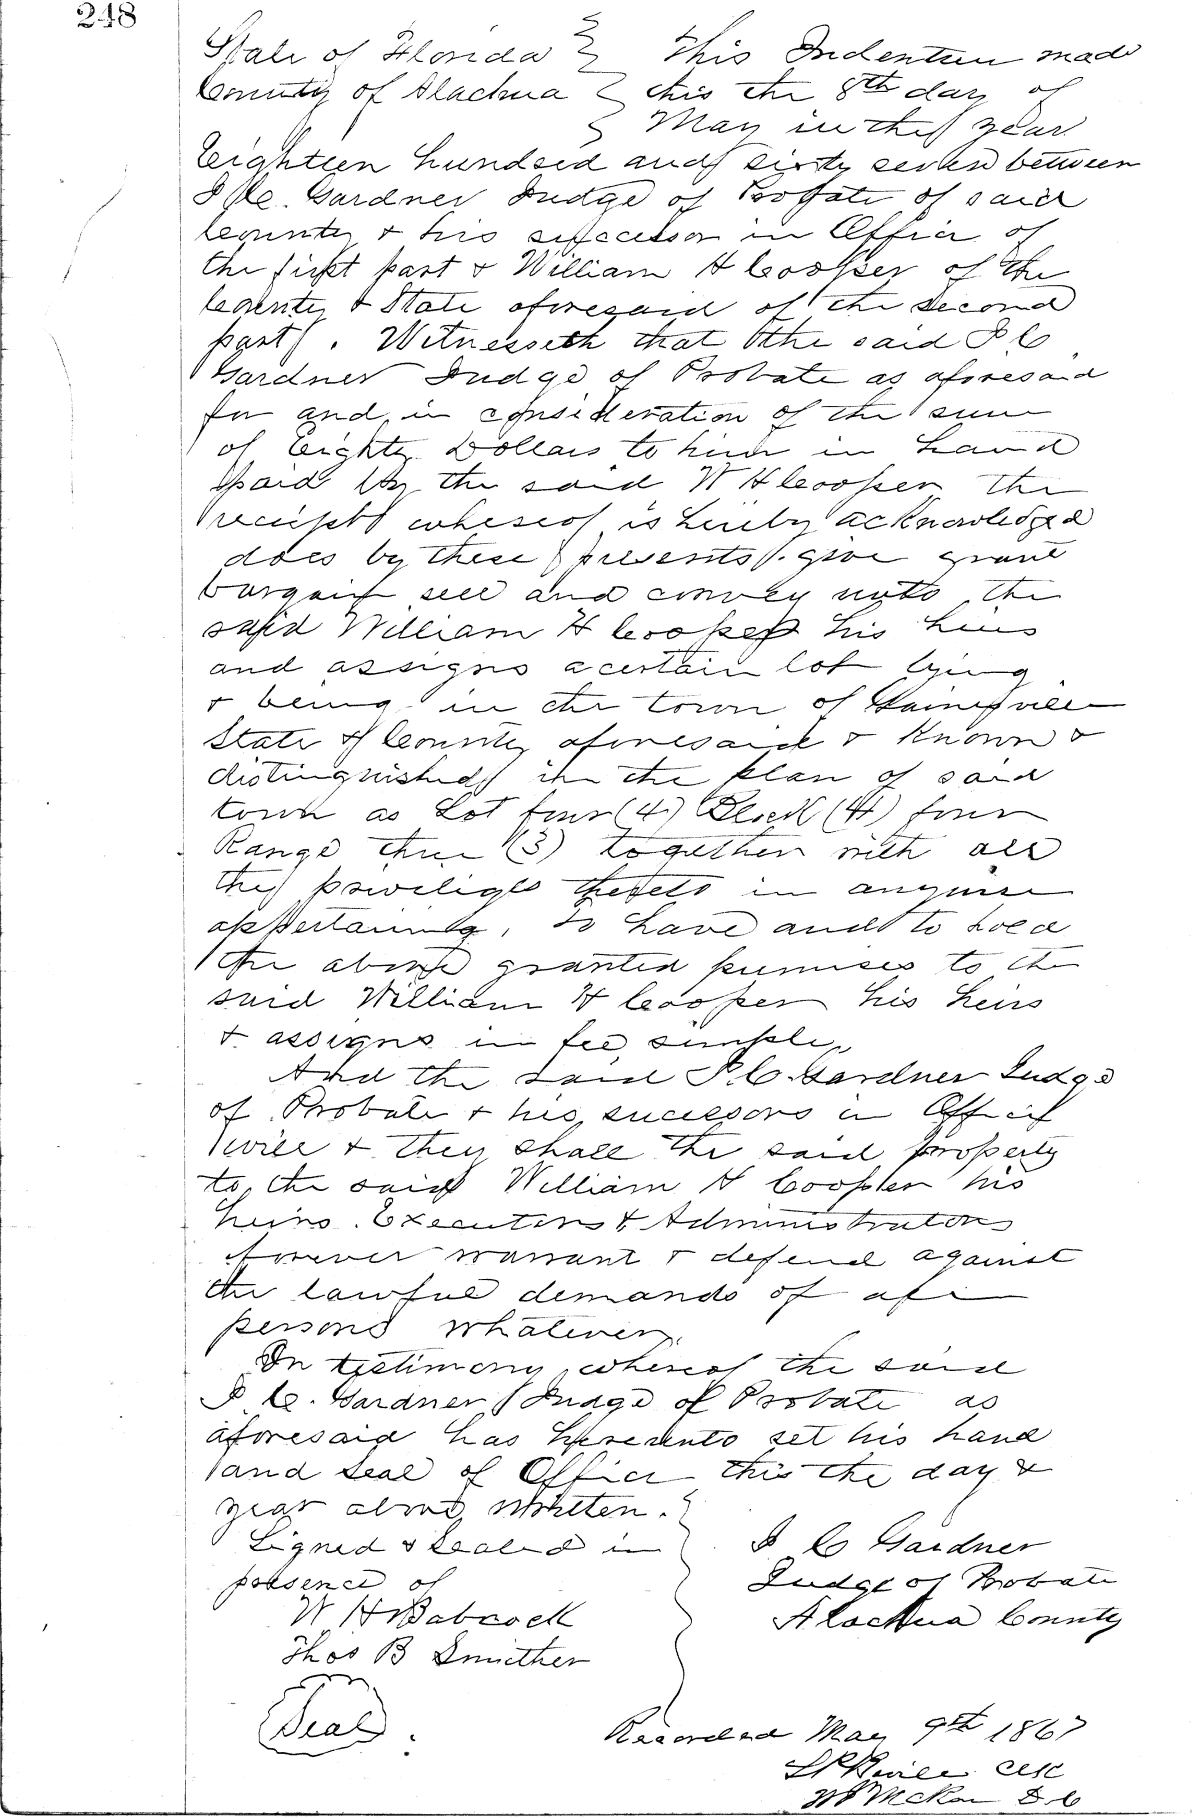 248
State of Florida } This Indenture made
County of Alachua } this the 8th day of
} May in the year
Eighteen hundred and sixty seven between
J C. Gardner Judge of Probate of said
County & his successor in Office of
the first part & William H Cooper of the
County & State aforesaid of the second
part. Witnesseth that the said J. C
Gardner Judge of Probate as aforesaid
for and in consideration of the sum
of Eighty Dollars to him in hand
paid by the said W H Cooper the
receipt whereof is hereby acknowledged
does by these presents give grant
bargain sell and convey unto the
said William H Cooper his heirs
and assigns a certain lot lying
& being in the town of Gainesville
State & County aforesaid & Known &
distinguished in the plan of said
town as Lot four (4) Block (4) four
Range three (3) together with all
the priveliges thereto in anywise
appertaining, to have and to hold
the above granted premises to the
said William H Cooper his heirs
& assigns in fee simple,
And the said J. C. Gardner Judge
of Probate & his sucessors in Office
will & they shall the said property
to the said William H Cooper his
heirs. Executors & Administrators
forever warrant & defend against
the lawful demands of all
persons whatever.
In testimony whereof the said
J C. Gardner Judge of Probate as
aforesaid has hereunto set his hand
and seal of Office this the day &
year above written.
Signed & Sealed in } J C Gardner
presence of Judge of Probate
W H Babcock Alachua County
Thos B Smither
Seal.
Recorded May 9th 1867
Clk
D C